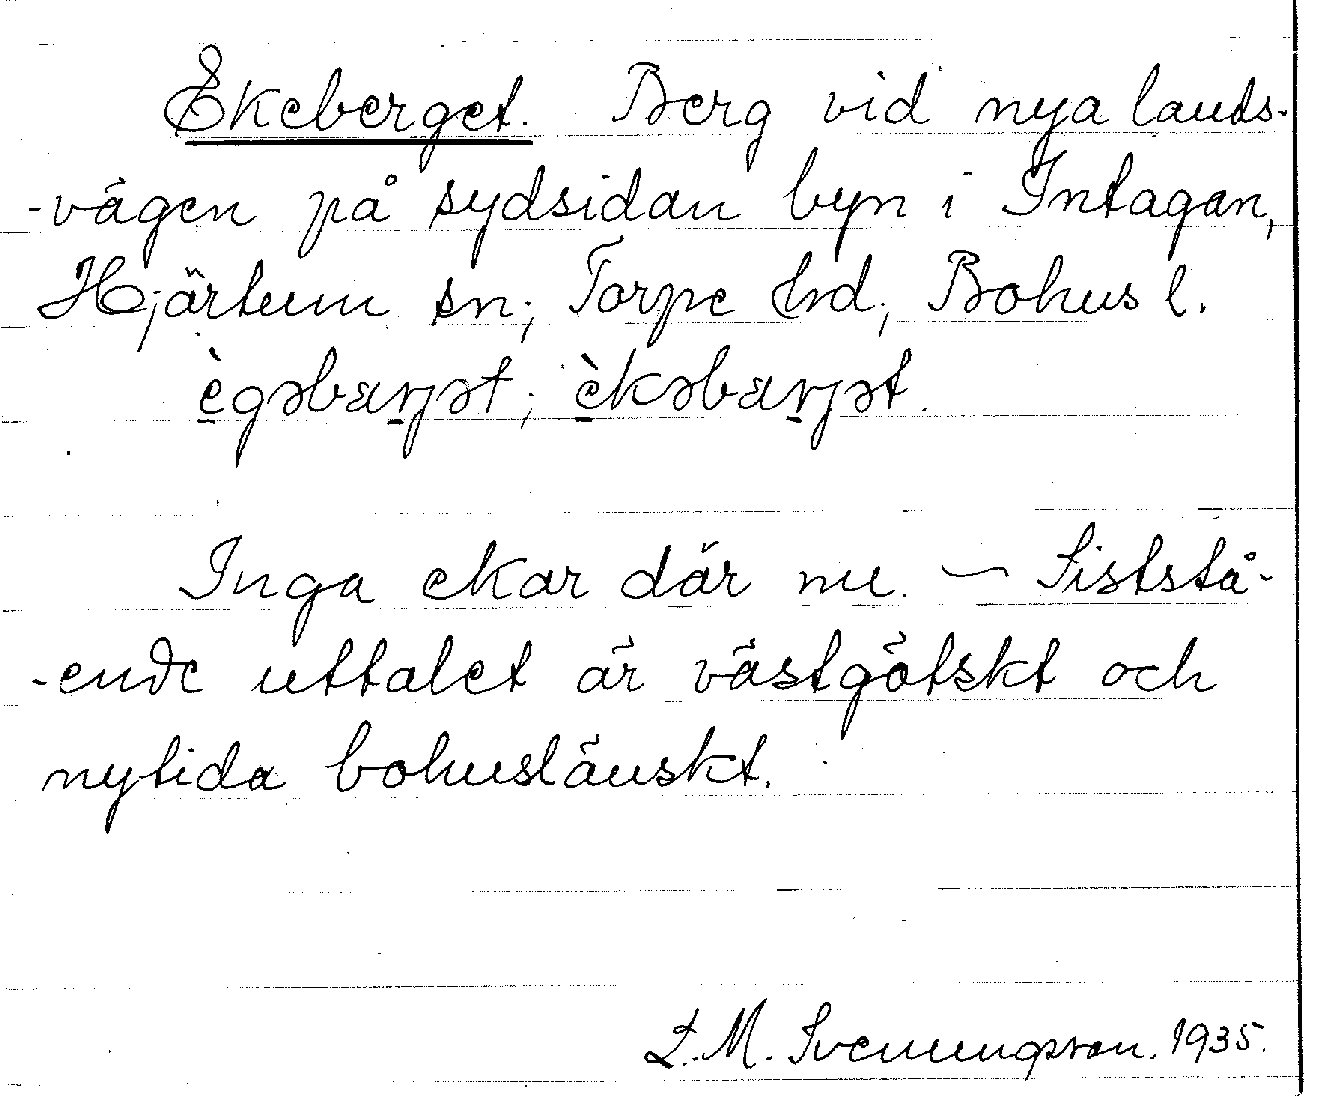 Ekeberget. Berg vid nya lands-
-vägen på sydsidan byn i Intagan,
Hjärtum sn; Torpe hd, Bohus l.
ègəbærjət; èkəbærjət.
Inga ekar där nu. — Siststå-
-ende uttalet är västgötskt och
nytida bohuslänskt.
L. M. Svenungsson. 1935.